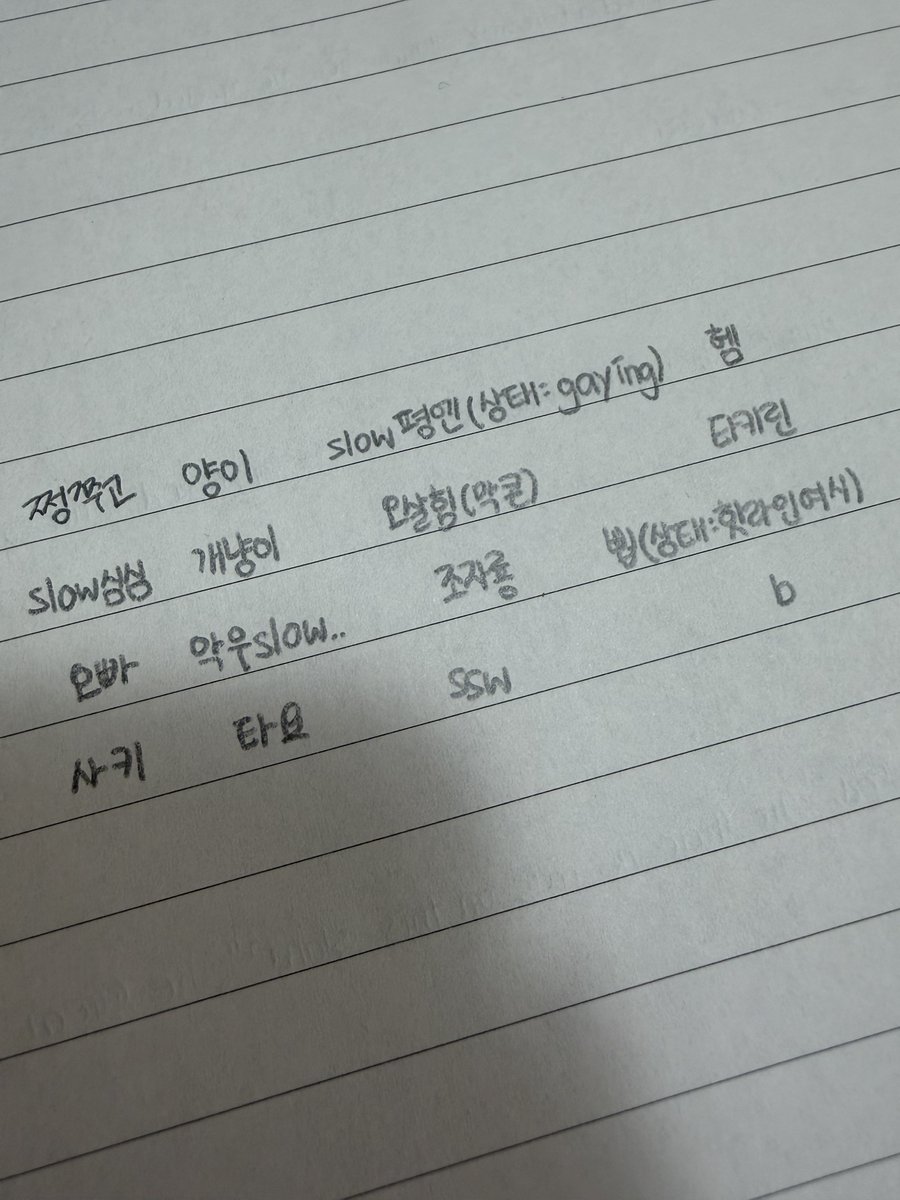 쩡쭈고 양이 slow평엔(상태:gaying) 헴
slow심심 개냥이 오살힘(막콘) 타키린
오빠 악우slow.. 조자룡 뷥(상태:핫라인여시)
사키 타요 ssw b